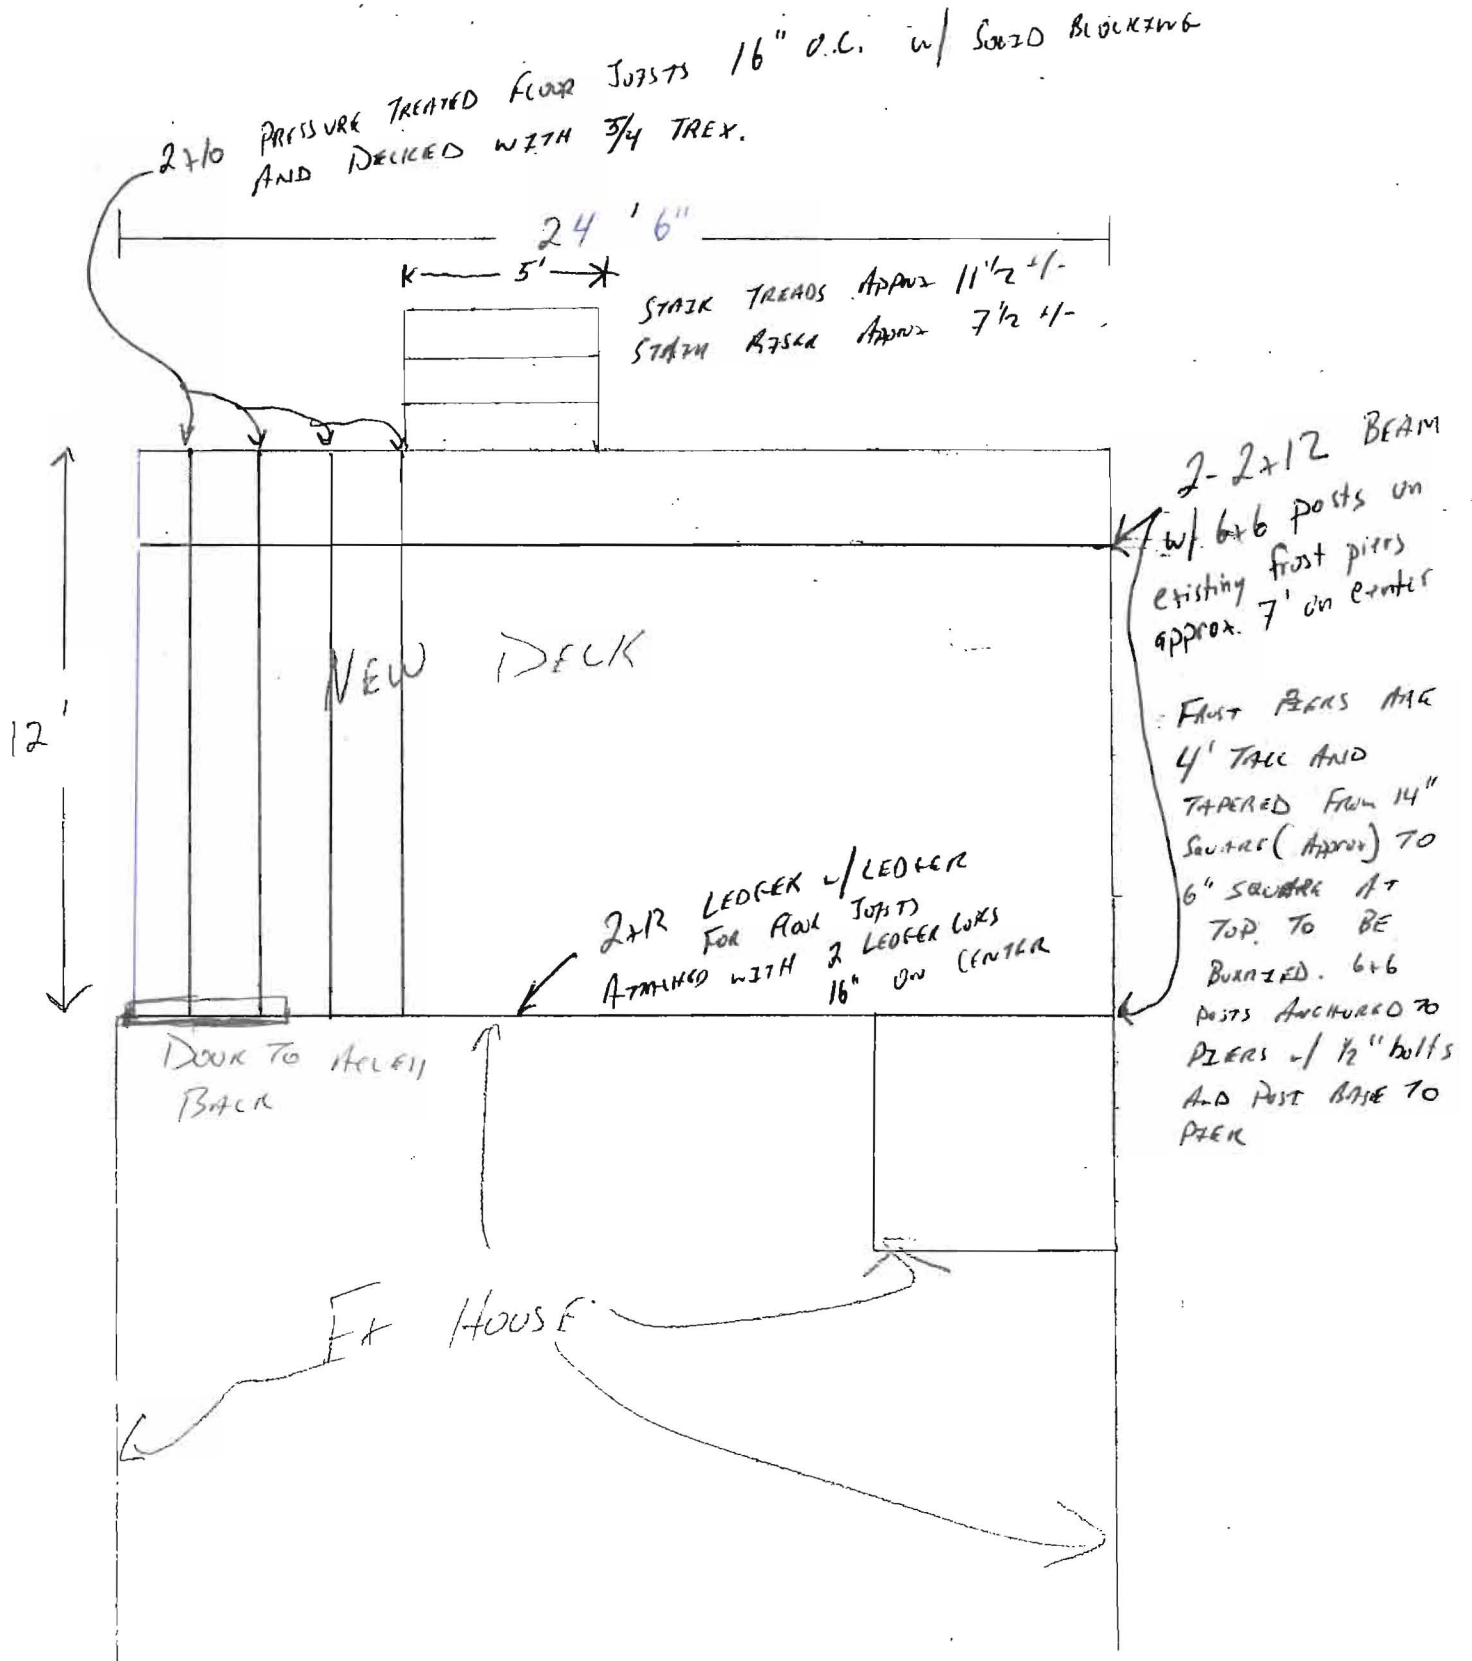 2x10 PRESSURE TREATED FLOOR JOISTS 16" O.C. w/ SOLID BLOCKING
AND DECKED WITH 5/4 TREX.
24' 6"
5'
STAIR TREADS APPROX 11 1/2 +/-
STAIR RISER APPROX 7 1/2 +/-
2-2x12 BEAM
w/ 6x6 posts on
existing frost piers
approx. 7' on center
NEW DECK
12'
FROST PIERS ARE
4' TALL AND
TAPERED FROM 14"
SQUARE (APPROX) TO
6" SQUARE AT
TOP. TO BE
BURRIED. 6x6
POSTS ANCHORED TO
PIERS w/ 1/2" bolts
AND POST BASE TO
PIER
2x12 LEDGER w/ LEDGER
FOR FLOOR JOISTS
ATTACHED WITH 2 LEDGER LOKS
16" ON CENTER
DOOR TO ACCESS
BACK
EX HOUSE